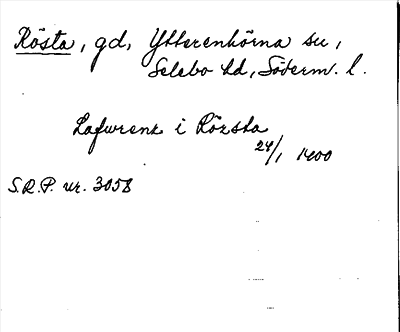 Rösta, gd, Ytterenhörna sn,
Selebo hd, Söderm. l.
Lafwrenz i Rörsta
24/1 1400
S.R.P. nr. 3058